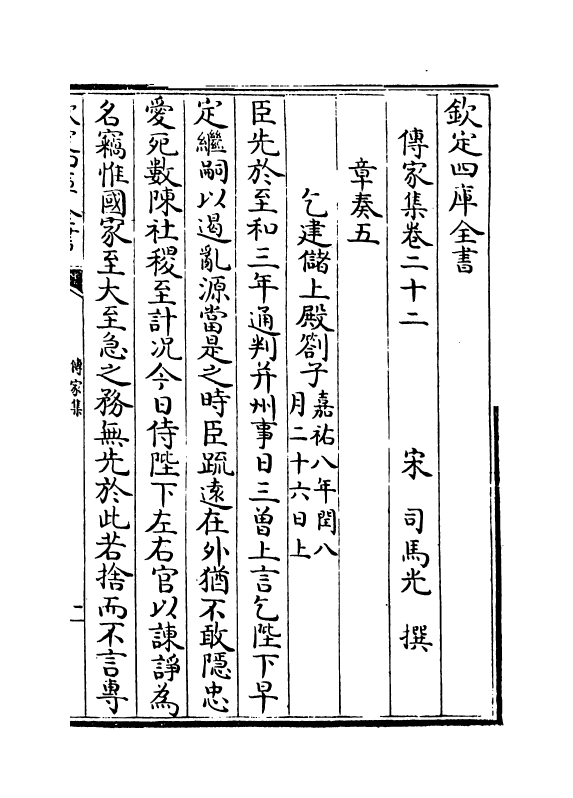 欽定四庫全書
傳家集卷二十二
宋 司馬光 撰
章奏五
乞建儲上殿劄子嘉祐八年閏八
月二十六日上
臣先於至和三年通判并州事日三曾上言乞陛下早
定繼嗣以遏亂源當是之時臣疏遠在外猶不敢隱忠
愛死數陳社稷至計况今日侍陛下左右官以諫諍為
名竊惟國家至大至急之務無先於此若捨而不言專
傳家集
二